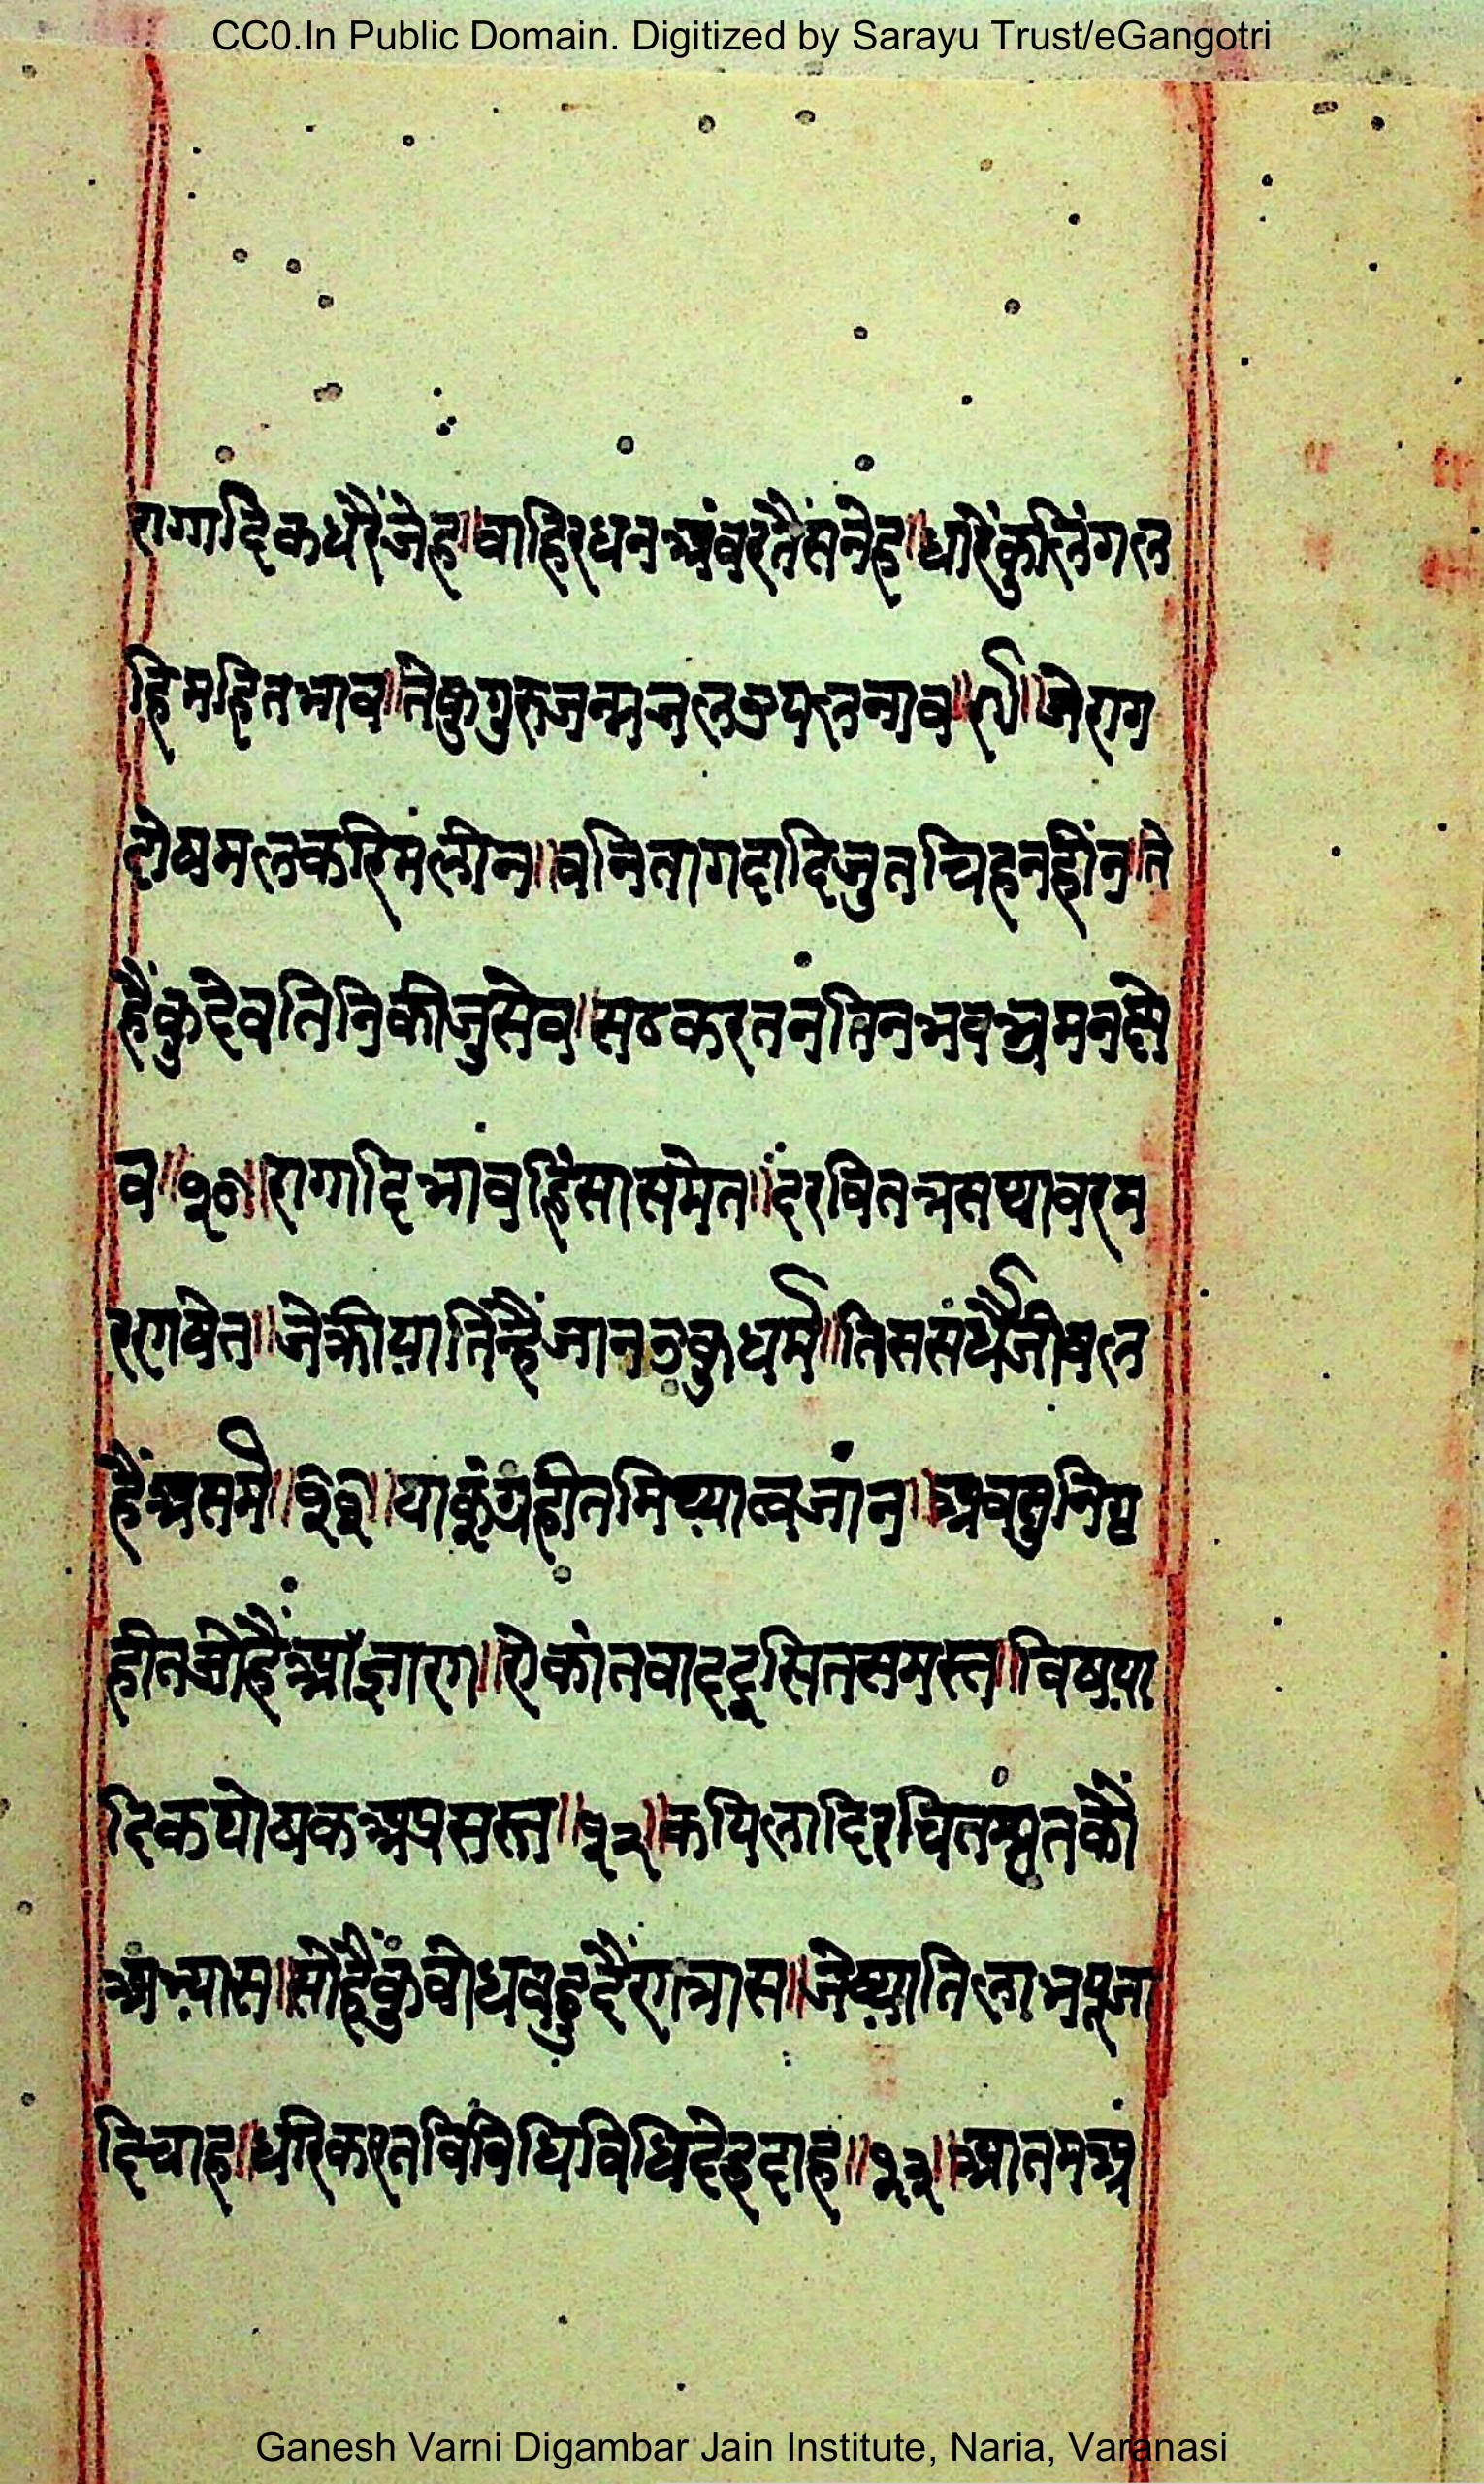 CC0.In Public Domain. Digitized by Sarayu Trust/eGangotri
रागादिकधरैंजेह॥वाहिरधनअंवरतैंसनेह॥धारैंकुलिंगल
हिमहितभाव॥तेकुगुरुजन्मजलउपलनाव॥९॥जेराग
दोषमलकरिमलीन॥वनितागदादिजुतचिहनहीन॥ते
हैंकुदेवतिनिकीजुसेव॥सठकरतनतिनभवभ्रमनछे
व॥१०॥रागादिभावहिंसासमेत॥दरवितत्रसथावरम
रणषेत॥जेक्रीयातिंन्हैंजानउकुधर्म॥तिससर्धैजीवल
हैंअसर्म॥११॥याकूंग्रहीतमिथ्यात्वजांन॥अवसुनिग्र
हीतजोहैअज्ञारण॥ऐकांतवाददूसितसमस्त॥विषया
दिकपोषकअप्रसस्त॥१२॥कपिलादिरचितश्रुतकौ
अभ्यास॥सोहैकुंवोधवहुदैंरणत्रास॥जेख्यातिलाभपूजा
दिचाह॥धरिकरतविविधिविधिदेहदाह॥१३॥आतमअ
Ganesh Varni Digambar Jain Institute, Naria, Varanasi